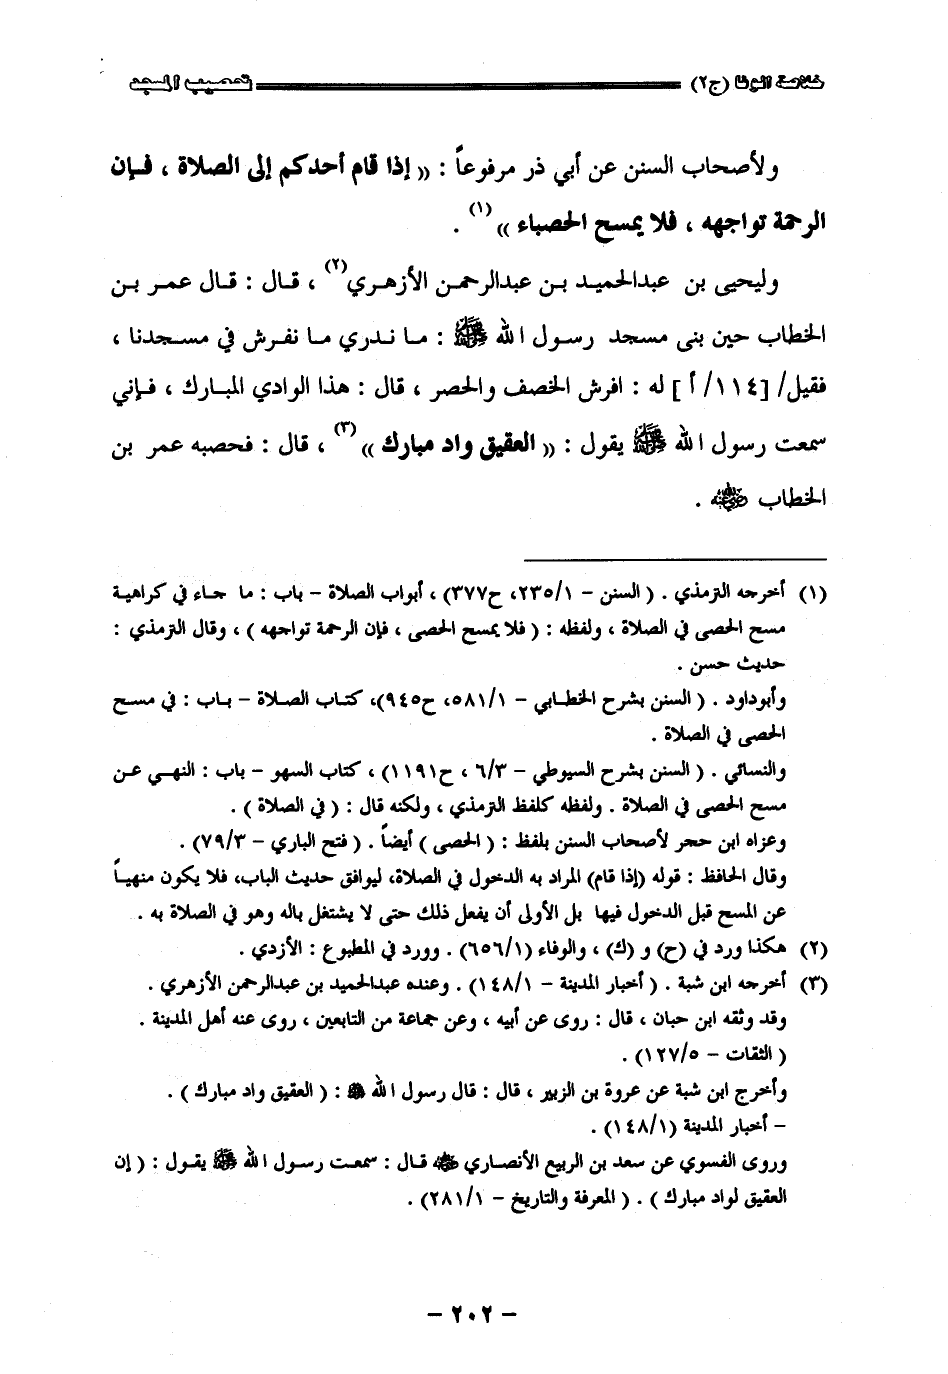 خلاصة الوفا (ج٢) تحصيب المسجد
ولأصحاب السنن عن أبي ذر مرفوعاً : (( إذا قام أحدكم إلى الصلاة ، فـإن
الرحمة تواجهه ، فلا يمسح الحصباء ))(١) .
وليحيى بن عبدالحميـد بـن عبدالرحمـن الأزهـري(٢) ، قـال : قـال عمـر بـن
الخطاب حين بنى مسجد رسـول الله ﷺ : مـا نـدري مـا نفـرش في مسـجدنا ،
فقيل/ [١١٤/ أ] له : افرش الخصف والحصر ، قال : هذا الوادي المبارك ، فـإني
سمعت رسول الله ﷺ يقول : (( العقيق واد مبارك ))(٣) ، قال : فحصبه عمر بن
الخطاب ﷺ .
(١) أخرجه الترمذي . ( السنن – ٢٣٥/١، ح٣٧٧) ، أبواب الصلاة – باب : ما جـاء في كراهيـة
مسح الحصى في الصلاة ، ولفظه : ( فلا يمسح الحصى ، فإن الرحمة تواجهه ) ، وقال الترمذي :
حديث حسن .
وأبوداود . ( السنن بشرح الخطـابي – ٥٨١/١، ح٩٤٥)، كتـاب الصـلاة – بـاب : في مسـح
الحصى في الصلاة .
والنسائي . ( السنن بشرح السيوطي – ٦/٣ ، ح١١٩١) ، كتاب السهو – باب : النهـي عـن
مسح الحصى في الصلاة . ولفظه كلفظ الترمذي ، ولكنه قال : ( في الصلاة ) .
وعزاه ابن حجر لأصحاب السنن بلفظ : ( الحصى ) أيضاً . ( فتح الباري – ٧٩/٣) .
وقال الحافظ : قوله (إذا قام) المراد به الدخول في الصلاة، ليوافق حديث الباب، فلا يكون منهيـاً
عن المسح قبل الدخول فيها بل الأولى أن يفعل ذلك حتى لا يشتغل باله وهو في الصلاة به .
(٢) هكذا ورد في (ح) و (ك) ، والوفاء (٦٥٦/١) . وورد في المطبوع : الأزدي .
(٣) أخرجه ابن شبة . ( أخبار المدينة – ١٤٨/١) . وعنده عبدالحميد بن عبدالرحمن الأزهري .
وقد وثقه ابن حبان ، قال : روى عن أبيه ، وعن جماعة من التابعين ، روى عنه أهل المدينة .
( الثقات – ١٢٧/٥) .
وأخرج ابن شبة عن عروة بن الزبير ، قال : قال رسول الله ﷺ : ( العقيق واد مبارك ) .
– أخبار المدينة (١٤٨/١) .
وروى الفسوي عن سعد بن الربيع الأنصاري ﷺ قـال : سمعت رسـول الله ﷺ يقـول : ( إن
العقيق لواد مبارك ) . ( المعرفة والتاريخ – ٢٨١/١) .
– ٢٠٢ –